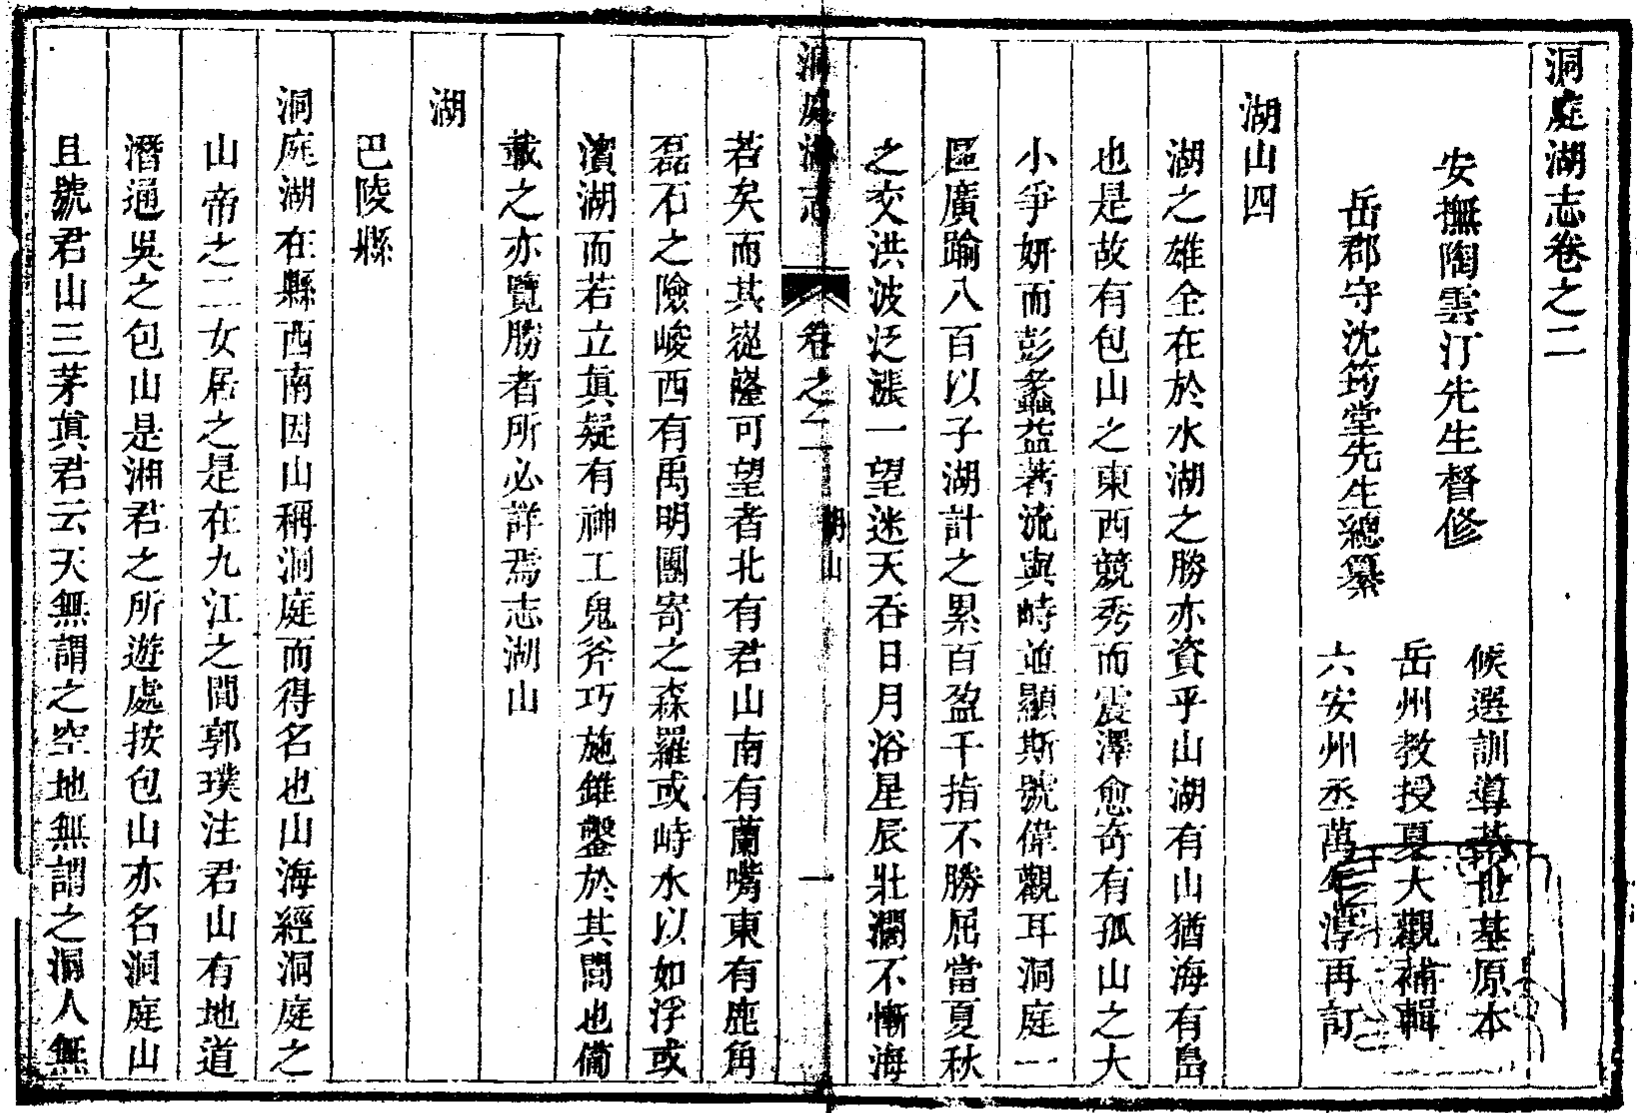 洞庭湖志卷之二
安撫陶雲汀先生督修
岳郡守沈筠堂先生總纂
候選訓導綦世基原本
岳州教授夏大觀補輯
六安州丞萬年淳再訂
湖山四
湖之雄全在於水湖之勝亦資乎山湖有山猶海有島
也是故有包山之東西競秀而震澤愈奇有孤山之大
小爭妍而彭蠡益著流與峙並顯斯號偉觀耳洞庭一
區廣踰八百以子湖計之累百盈千指不勝屈當夏秋
之交洪波泛漲一望迷天吞日月浴星辰壯瀾不慚海
洞庭湖志 卷之二 湖山 一
若矣而其嵸嶐可望者北有君山南有蘭嘴東有鹿角
磊石之險峻西有禹明團寄之森羅或峙水以如浮或
濱湖而若立眞疑有神工鬼斧巧施錐鑿於其間也備
載之亦覽勝者所必詳焉志湖山
湖
巴陵縣
洞庭湖在縣西南因山稱洞庭而得名也山海經洞庭之
山帝之二女居之是在九江之間郭璞注君山有地道
潛通吳之包山是湘君之所遊處按包山亦名洞庭山
且號君山三茅眞君云天無謂之空地無謂之洞人無